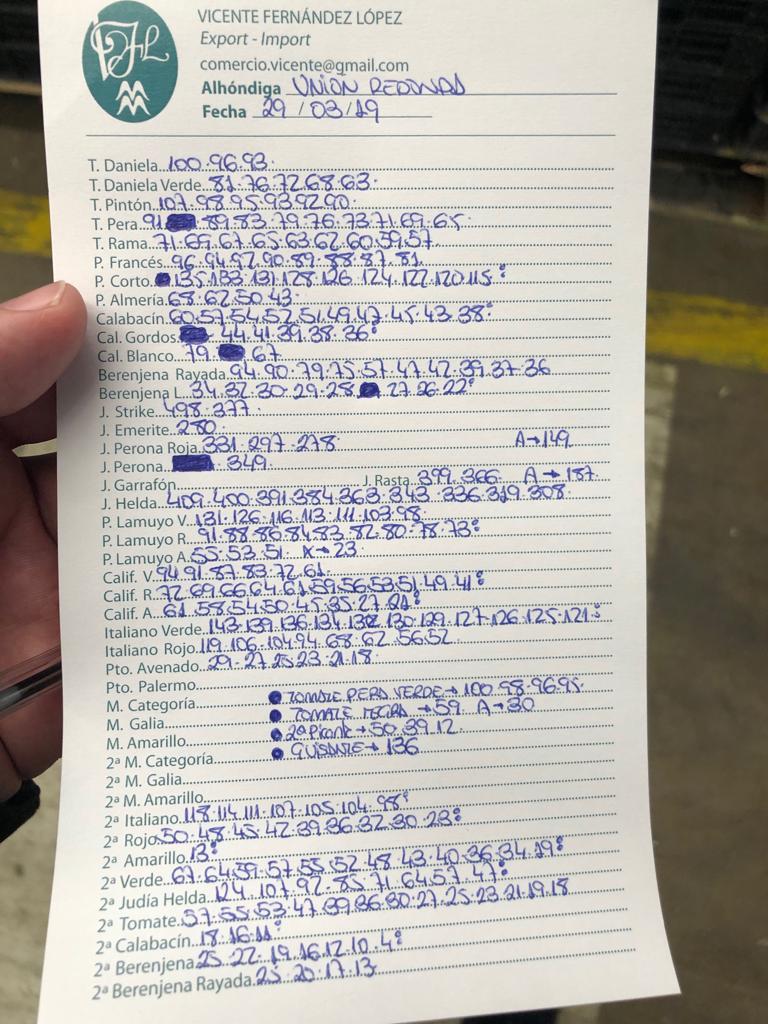 VICENTE FERNÁNDEZ LÓPEZ
Export - Import
comercio.vicente@gmail.com
Alhóndiga UNION REDONDAS
Fecha 29/03/19
T. Daniela 100.96.93.
T. Daniela Verde 81.76.72.68.63.
T. Pintón 107.98.95.93.92.90.
T. Pera 91 89.83.79.76.73.71.69.65.
T. Rama 71.69.67.65.63.62.60.59.57.
P. Francés 96.94.92.90.89.88.87.81.
P. Corto 135.133.131.128.126.124.122.120.115
P. Almería 68.62.50.43.
Calabacín 60.57.54.52.51.49.47.45.43.38
Cal. Gordos 44.41.39.38.36
Cal. Blanco 79. 67
Berenjena Rayada 94.90.79.75.57.47.42.39.37.36
Berenjena L. 34.32.30.29.28 27.26.22
J. Strike 498.377.
J. Emerite 280.
J. Perona Roja 331.297.278. A→149
J. Perona 349.
J. Garrafón J. Rasta 399.366. A→187
J. Helda 409.400.391.384.363.343.336.319.308
P. Lamuyo V. 131.126.116.113.111.103.98.
P. Lamuyo R. 91.88.86.84.83.82.80.78.73
P. Lamuyo A. 55.53.51. X→23.
Calif. V. 94.91.87.83.72.61.
Calif. R. 72.69.66.64.61.59.56.53.51.49.41
Calif. A. 61.58.54.50.45.35.27.21
Italiano Verde 143.139.136.134.132.130.129.127.126.125.121
Italiano Rojo 119.106.104.94.68.62.56.52.
Pto. Avenado 29.27.25.23.21.18.
Pto. Palermo
M. Categoría • TOMATE PERA VERDE→100.98.96.95.
M. Galia • TOMATE →59. A→30
M. Amarillo • 2ª Picante→50.39.12.
2ª M. Categoría • GUISANTE→136
2ª M. Galia
2ª M. Amarillo
2ª Italiano 118.114.111.107.105.104.98
2ª Rojo 50.48.45.42.39.36.32.30.23
2ª Amarillo 13
2ª Verde 67.64.59.57.55.52.48.43.40.36.34.19
2ª Judía Helda 124.107.92.85.71.64.57.47
2ª Tomate 57.55.53.47.39.36.30.27.25.23.21.19.18
2ª Calabacín 18.16.11
2ª Berenjena 25.22.19.16.12.10.4
2ª Berenjena Rayada 25.20.17.13.